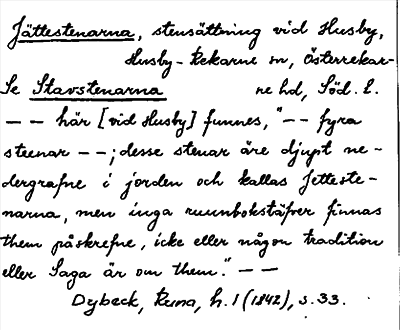 Jättestenarna, stensättning vid Husby,
Husby-Rekarne sn, Österrekar-
Se Stavstenarna ne hd, Söd. l.
— — här [vid Husby] funnes, "— — fyra
steenar — —; desse stenar äre djupt ne-
dergrafne i jorden och kallas Jetteste-
narna, men inga runnbokstäfver finnas
them påskrefne, icke eller någon tradition
eller Saga är om them." — —
Dybeck, Runa, h. 1 (1842), s. 33.